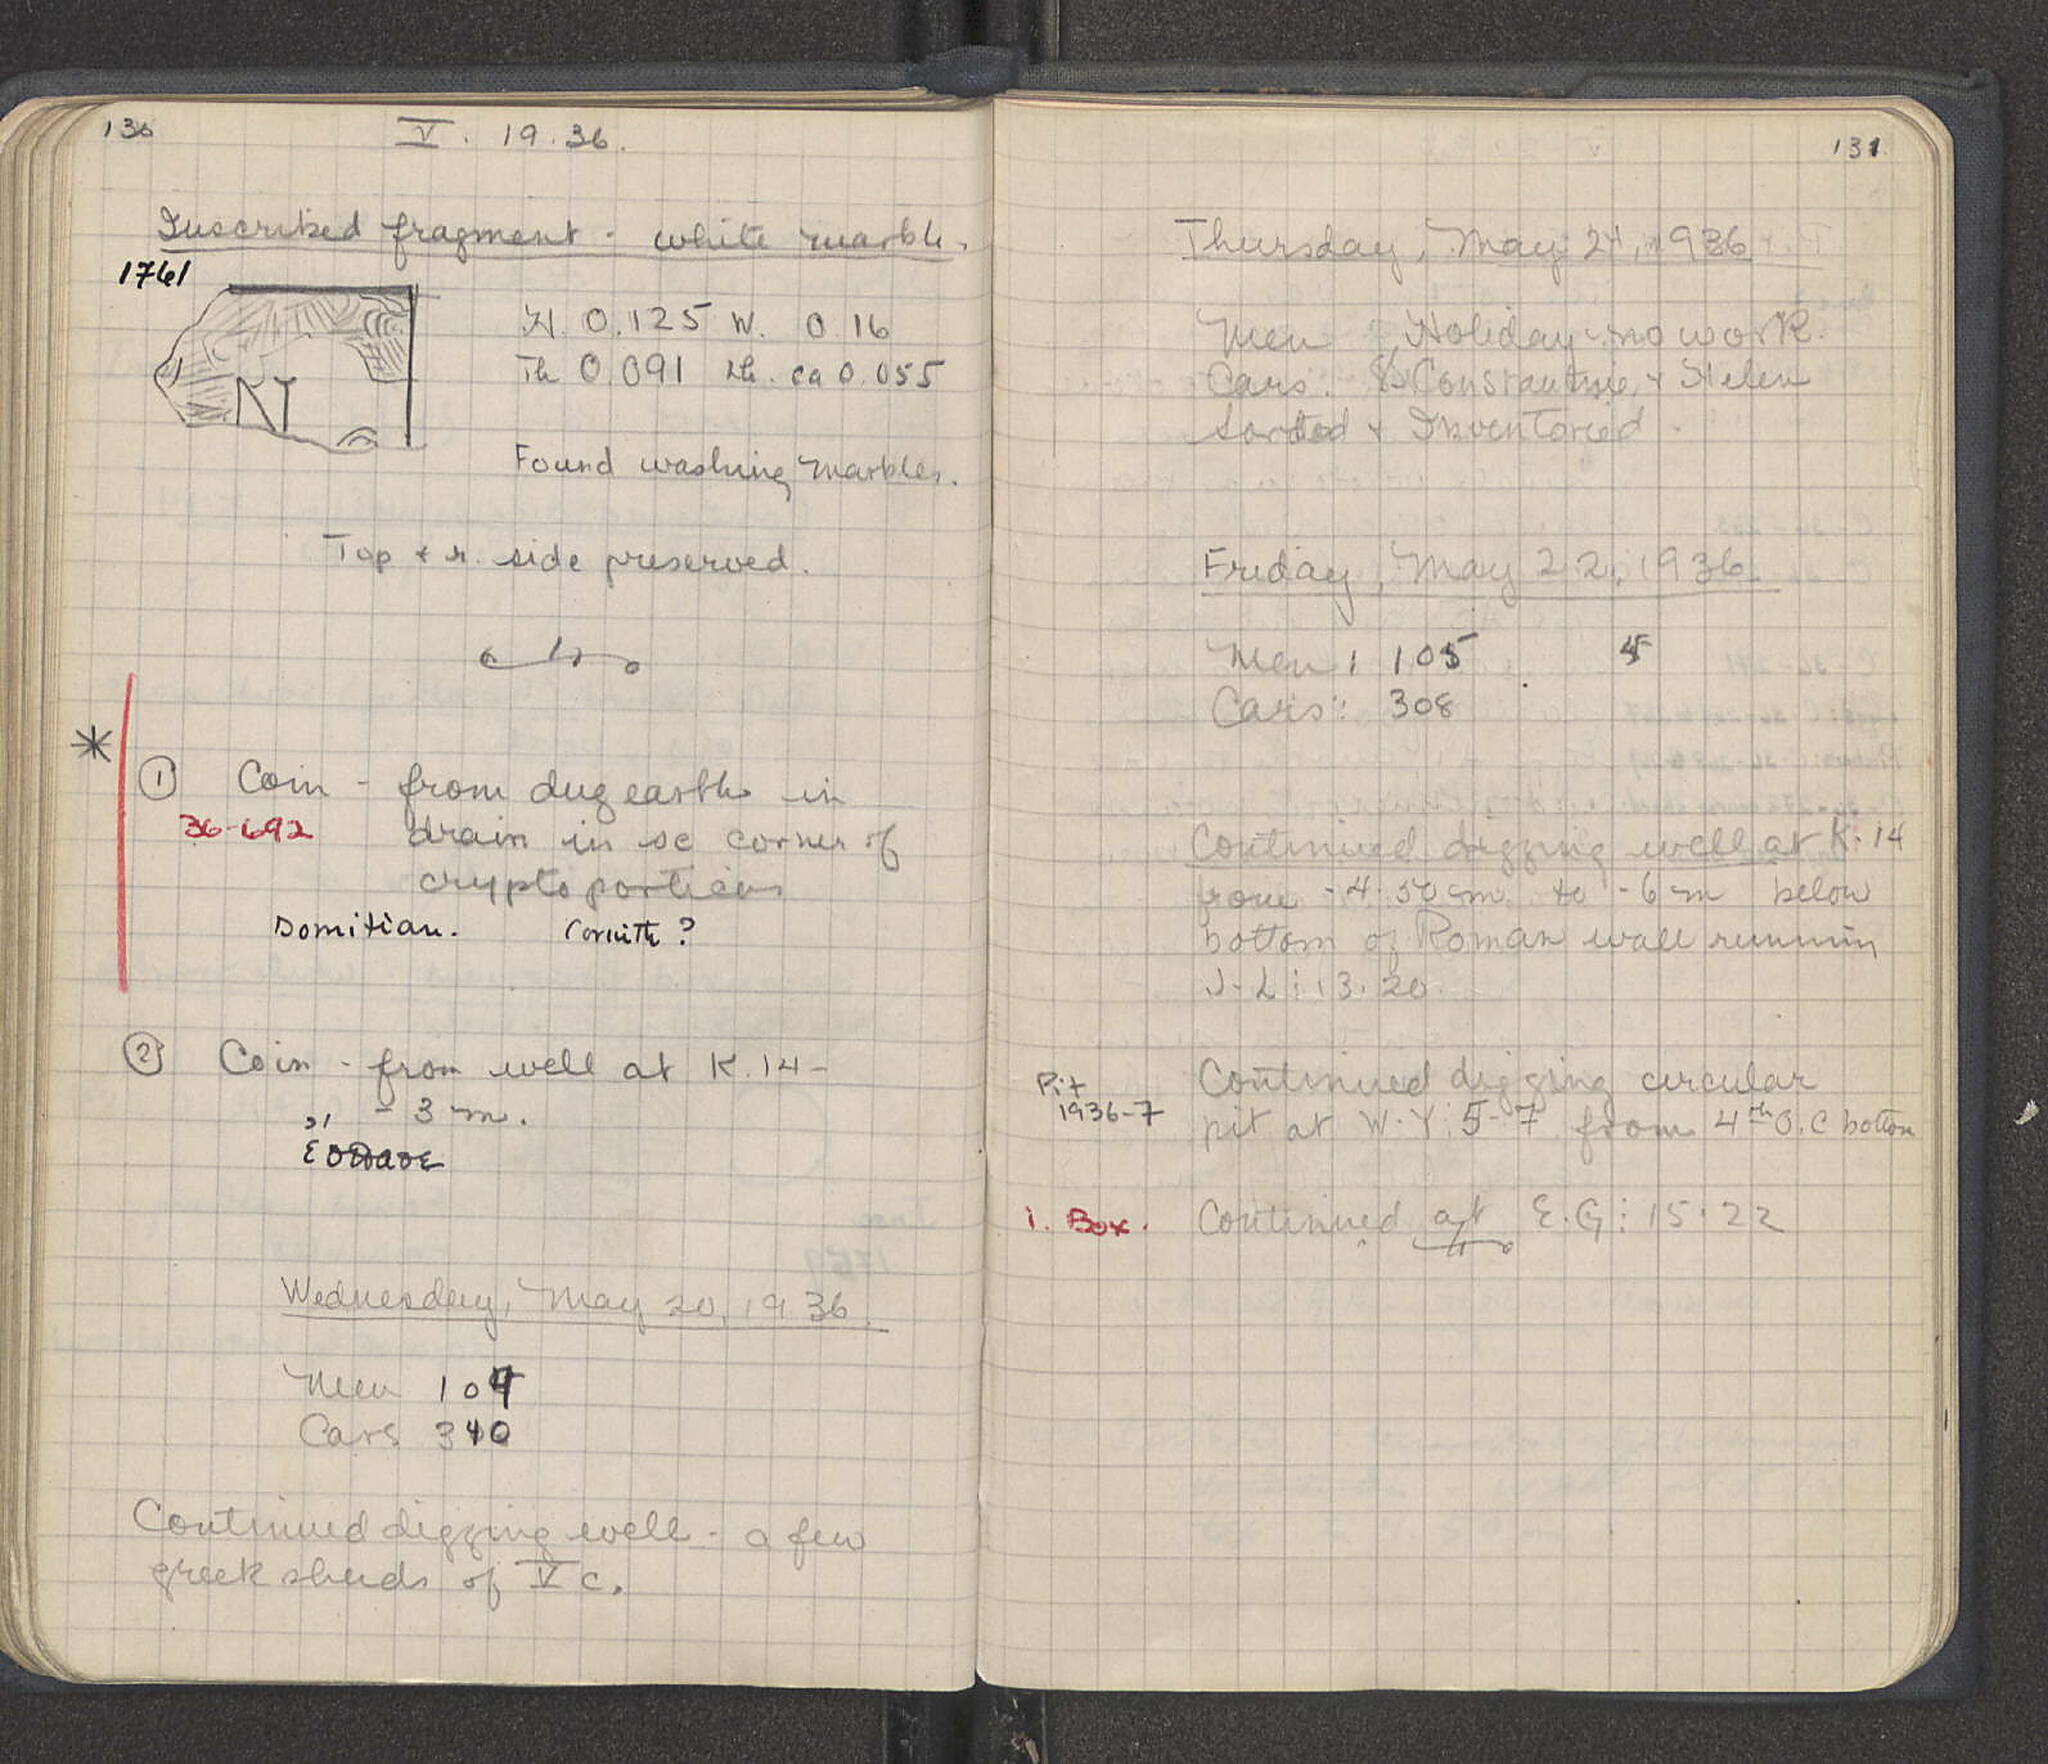 130
V. 19.36.
Inscribed fragment - white marble.
1761
H. 0.125 W. 0.16
Th 0.091 Lh. ca 0.055
NT
Found washing marbles.
Top & r. side preserved.
*
① Coin - from dug earth in
36-692 drain in se corner of
crypto porticus
Domitian. Corinth?
② Coin - from well at K.14 -
,, - 3 m.
Wednesday, May 20, 1936.
Men 104
Cars 340
Continued digging well - a few
greek sherds of V c.
131
Thursday, May 21, 1936
Men Holiday - no work.
Cars. Constantine & Helen
Sorted & Inventoried.
Friday, May 22, 1936
Men: 105
Cars: 308
Continued digging well at K.14
from -4.50 m to -6 m below
bottom of Roman wall running
J-L:13.20.
Pit Continued digging circular
1936-7 pit at W-Y:5-7 from 4th O.C bottom
1. Box. Continued at E.G:15.22